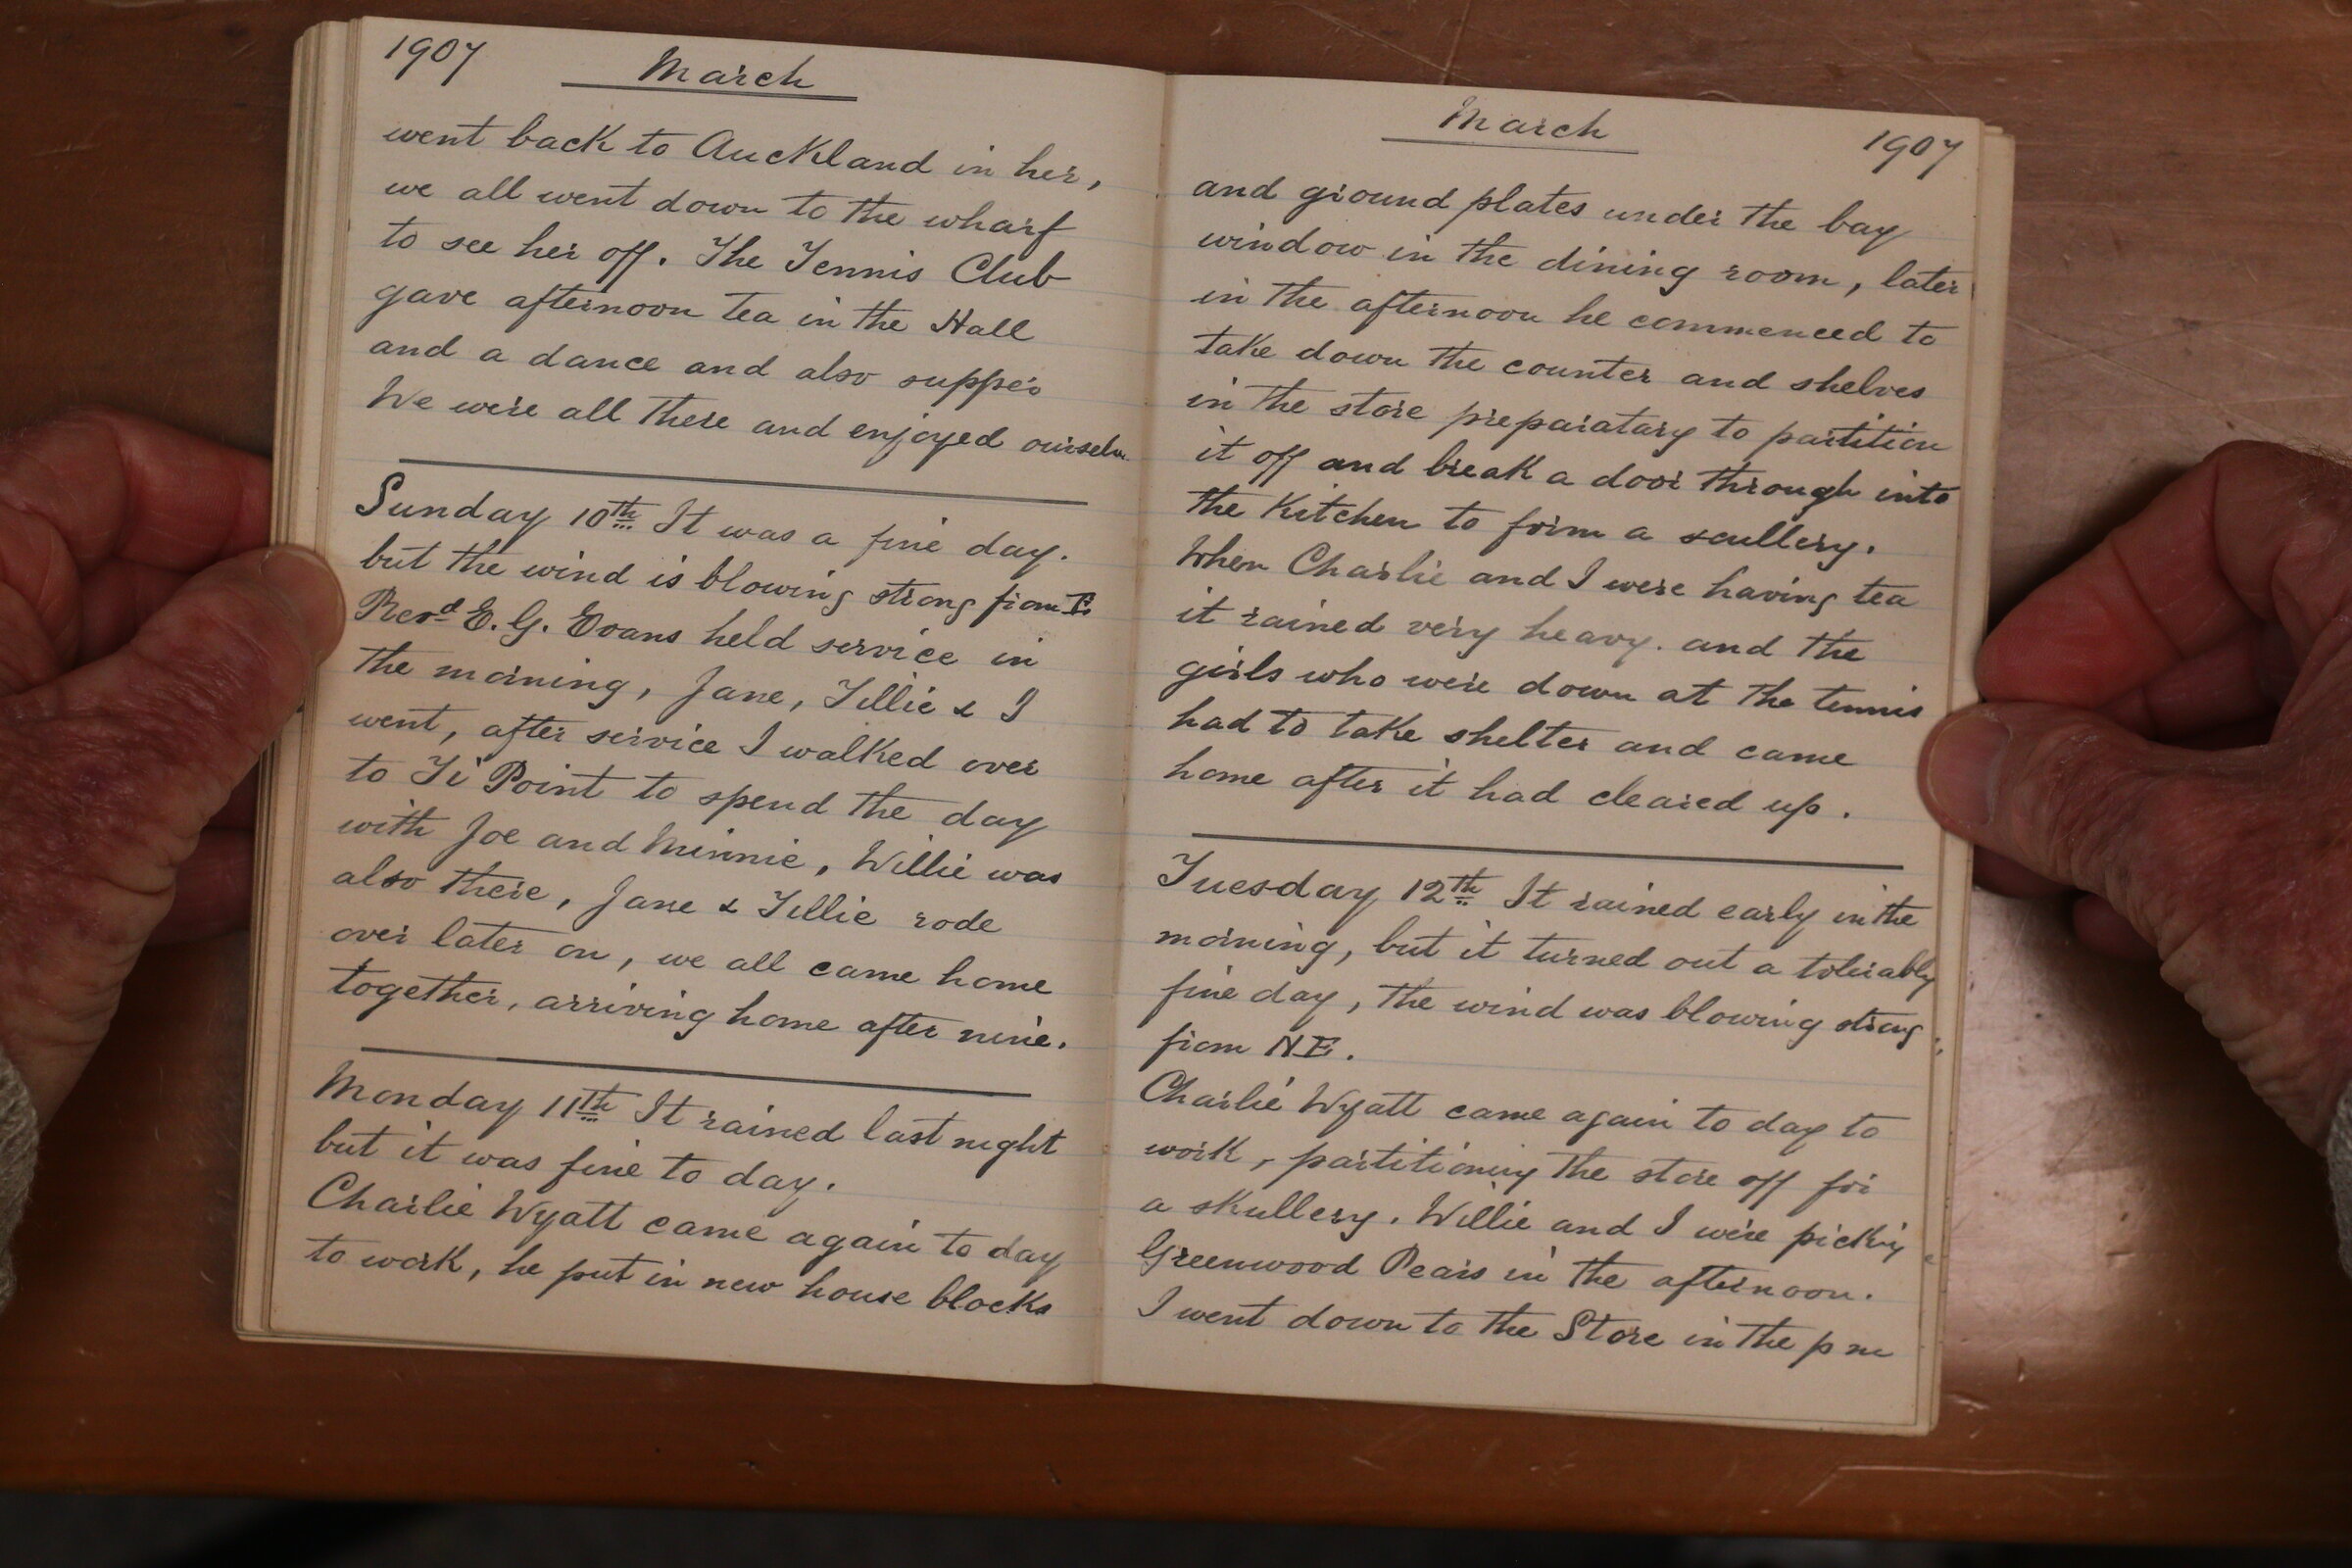 1907 March
went back to Auckland in her,
we all went down to the wharf
to see her off. The Tennis Club
gave afternoon tea in the Hall
and a dance and also supper
We were all there and enjoyed ourselv
Sunday 10th It was a fine day.
but the wind is blowing strong from E.
Revd E. G. Evans held service in
the morning, Jane, Tillie & I
went, after service I walked over
to Ti Point to spend the day
with Joe and Minnie, Willie was
also there, Jane & Tillie rode
over later on, we all came home
together, arriving home after nine.
Monday 11th It rained last night
but it was fine to day.
Charlie Wyatt came again to day
to work, he put in new house blocks
March 1907
and ground plates under the bay
window in the dining room, later
in the afternoon he commenced to
take down the counter and shelves
in the store preparatary to partition
it off and break a door through into
the Kitchen to form a scullery.
When Charlie and I were having tea
it rained very heavy. and the
girls who were down at the tennis
had to take shelter and came
home after it had cleared up.
Tuesday 12th It rained early in the
morning, but it turned out a tolerably
fine day, the wind was blowing strong
from NE.
Charlie Wyatt came again to day to
work, partitioning the store off for
a skullery. Willie and I were picking
Greenwood Pears in the afternoon.
I went down to the Store in the pm